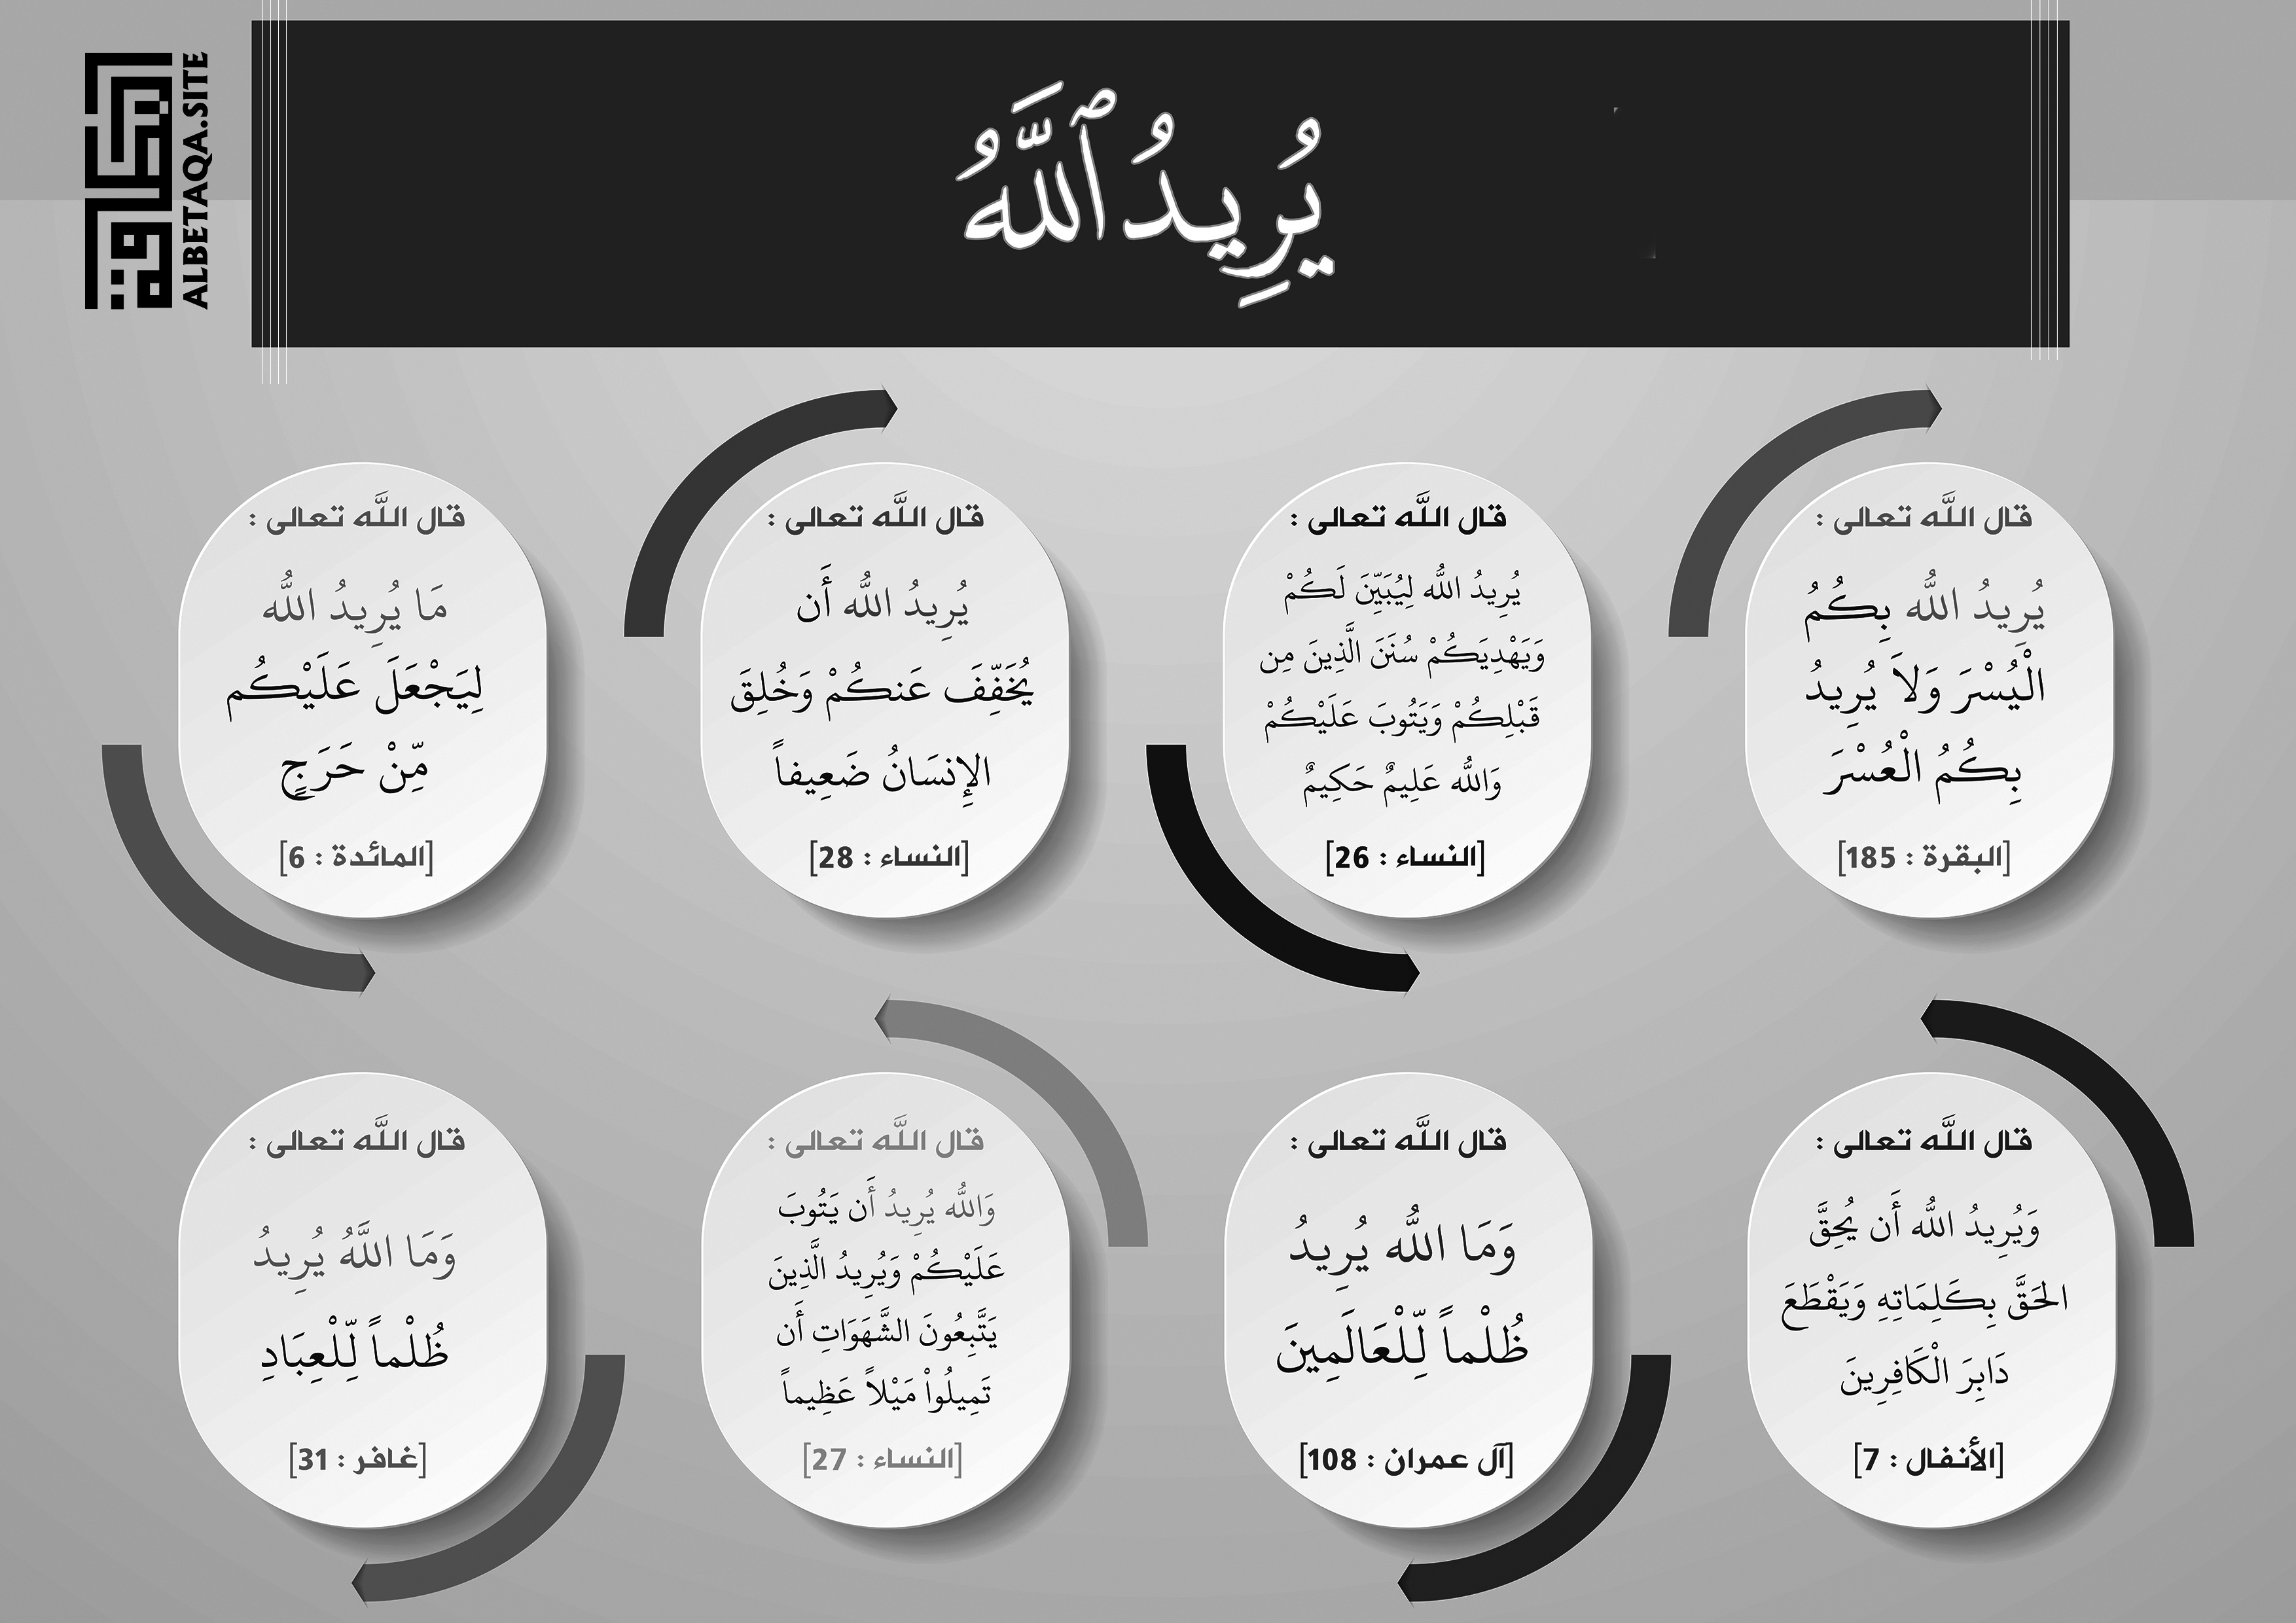 يُرِيدُ ٱللَّهُ
بطاقة
ALBETAQA.SITE
قال اللَّه تعالى :
يُرِيدُ اللّٰهُ بِكُمُ
الْيُسْرَ وَلاَ يُرِيدُ
بِكُمُ الْعُسْرَ
[البقرة : 185]
قال اللَّه تعالى :
يُرِيدُ اللّٰهُ لِيُبَيِّنَ لَكُمْ
وَيَهْدِيَكُمْ سُنَنَ الَّذِينَ مِن
قَبْلِكُمْ وَيَتُوبَ عَلَيْكُمْ
وَاللّٰهُ عَلِيمٌ حَكِيمٌ
[النساء : 26]
قال اللَّه تعالى :
يُرِيدُ اللّٰهُ أَن
يُخَفِّفَ عَنكُمْ وَخُلِقَ
الإِنسَانُ ضَعِيفاً
[النساء : 28]
قال اللَّه تعالى :
مَا يُرِيدُ اللّٰهُ
لِيَجْعَلَ عَلَيْكُم
مِّنْ حَرَجٍ
[المائدة : 6]
قال اللَّه تعالى :
وَيُرِيدُ اللّٰهُ أَن يُحِقَّ
الحَقَّ بِكَلِمَاتِهِ وَيَقْطَعَ
دَابِرَ الْكَافِرِينَ
[الأنفال : 7]
قال اللَّه تعالى :
وَمَا اللّٰهُ يُرِيدُ
ظُلْماً لِّلْعَالَمِينَ
[آل عمران : 108]
قال اللَّه تعالى :
وَاللّٰهُ يُرِيدُ أَن يَتُوبَ
عَلَيْكُمْ وَيُرِيدُ الَّذِينَ
يَتَّبِعُونَ الشَّهَوَاتِ أَن
تَمِيلُواْ مَيْلاً عَظِيماً
[النساء : 27]
قال اللَّه تعالى :
وَمَا اللَّهُ يُرِيدُ
ظُلْماً لِّلْعِبَادِ
[غافر : 31]